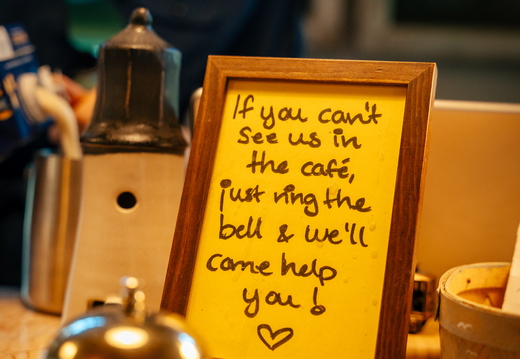 If you can't
see us in
the café,
just ring the
bell & we'll
come help
you!
♡